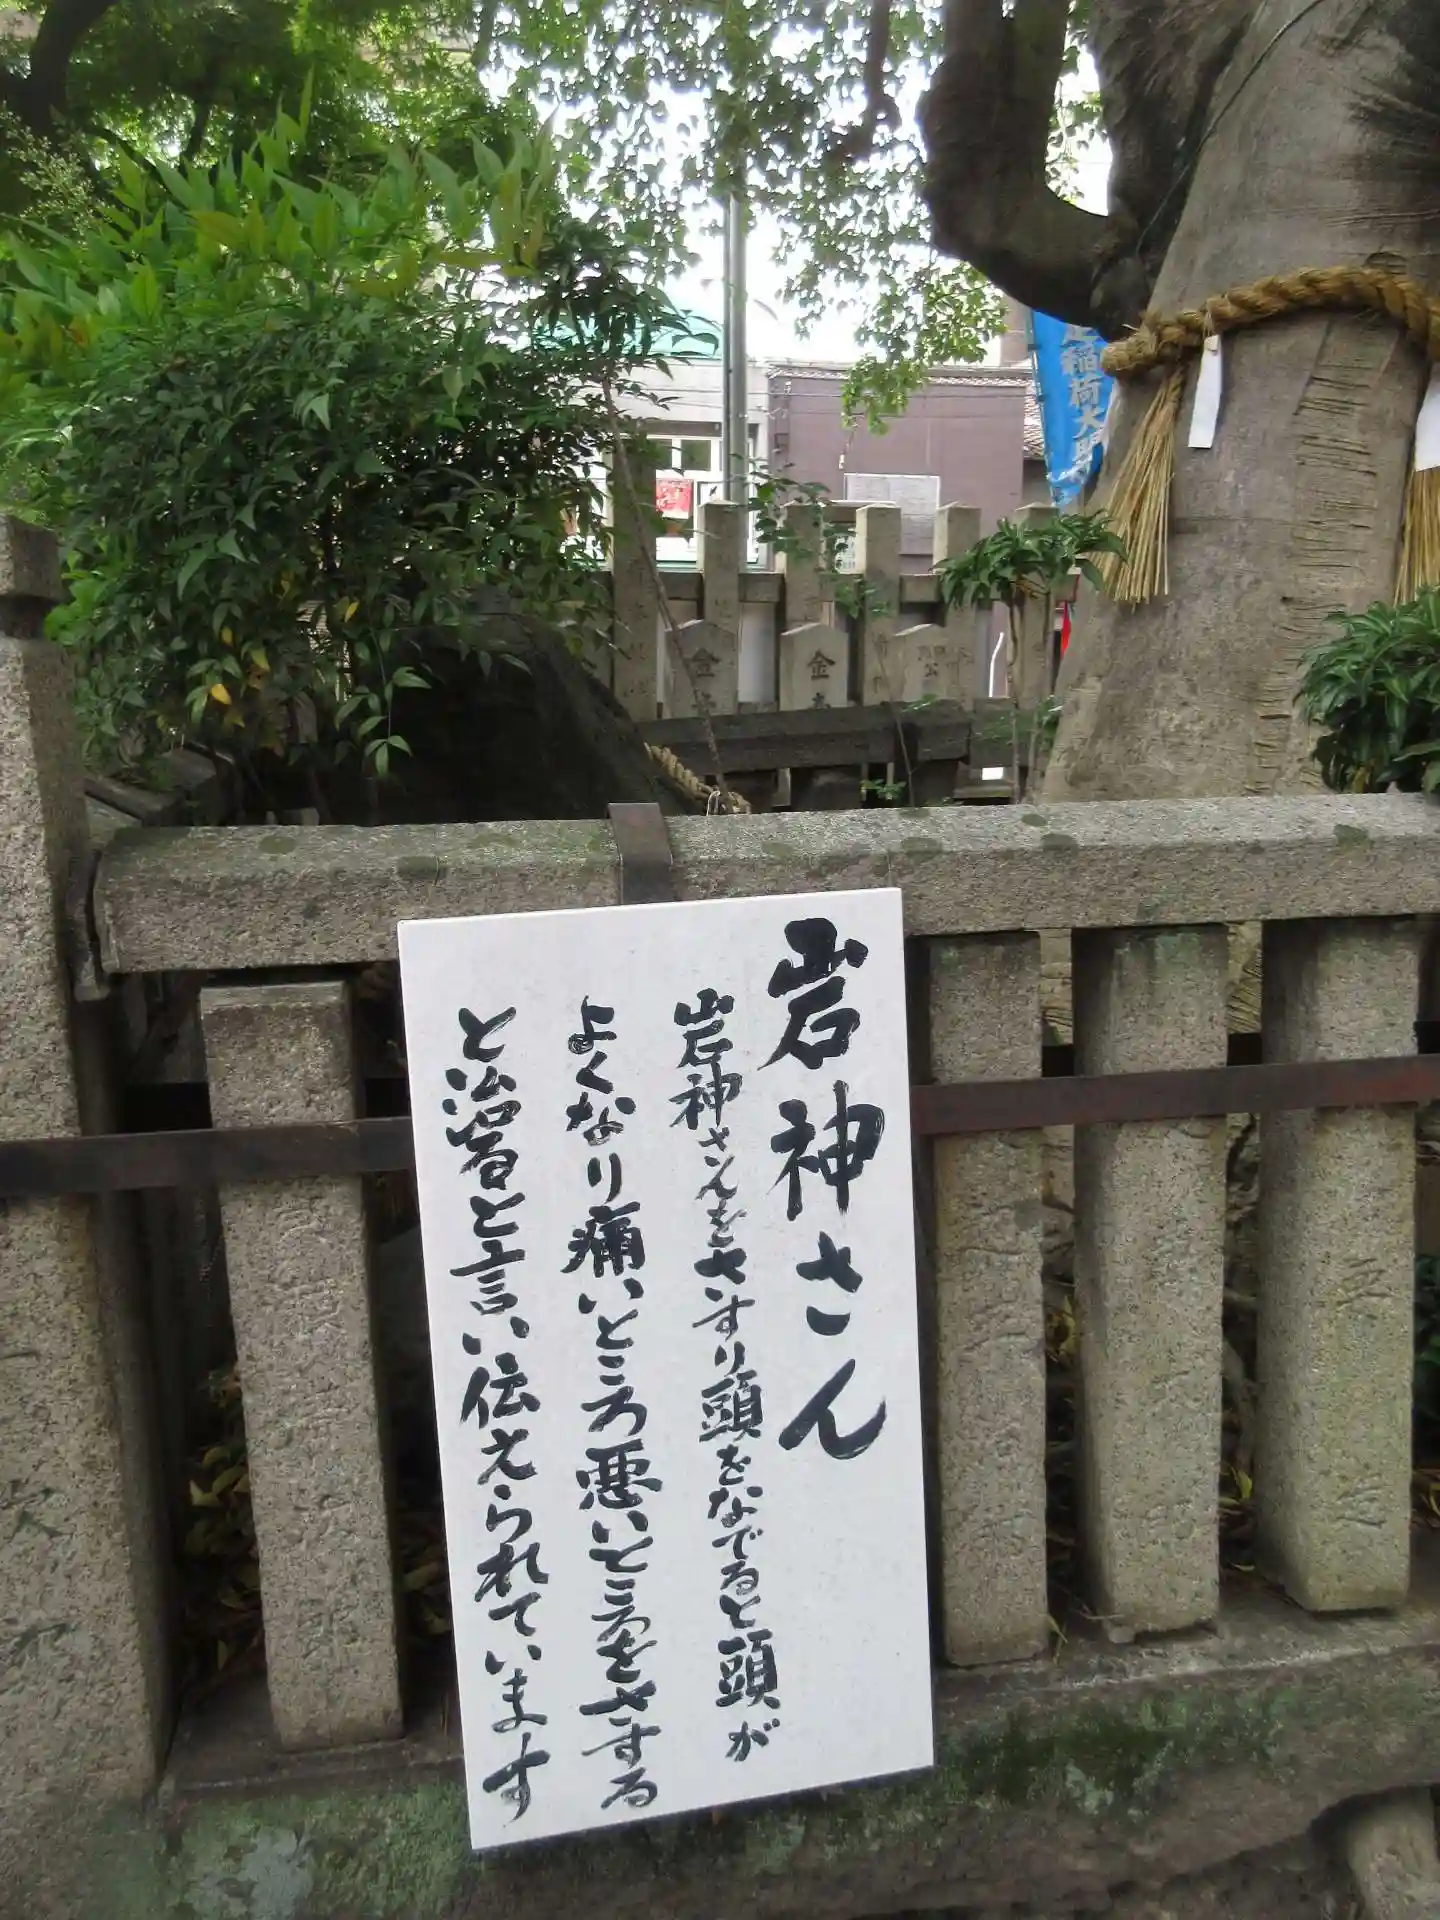 岩神さん
岩神さんをさすり頭をなでると頭が
よくなり痛いところ悪いところをさする
と治ると言い伝えられています
稲荷大明
金
金